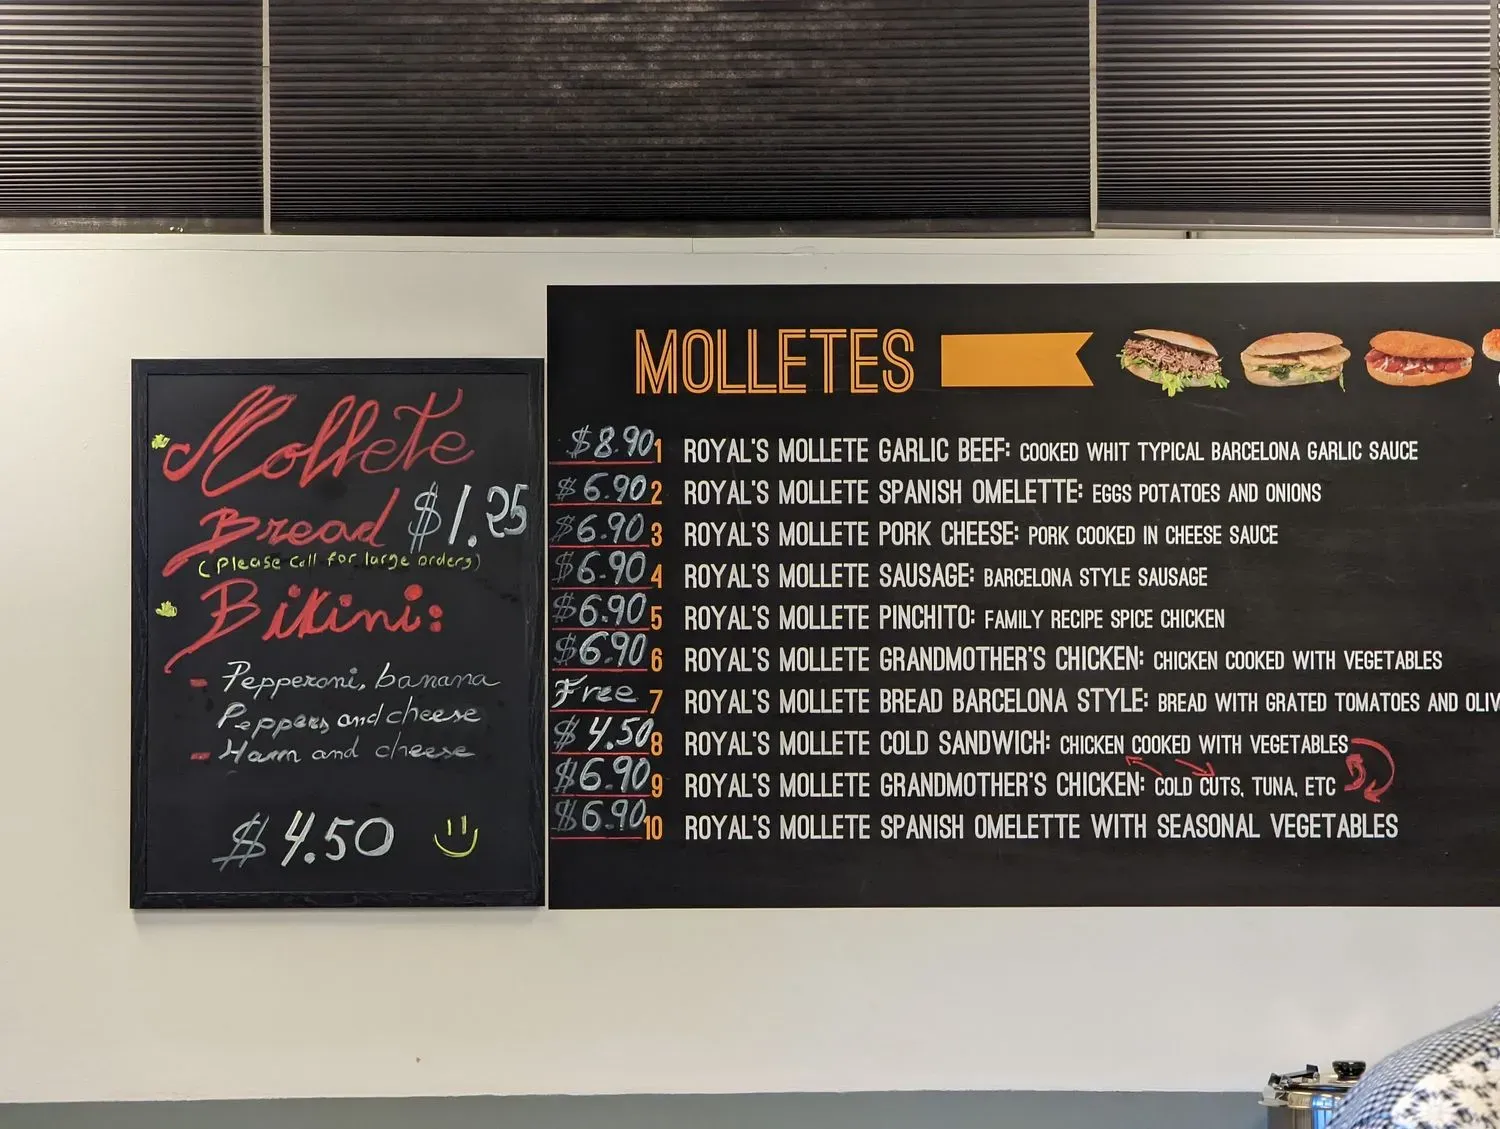 Mollete
Bread $1.25
(Please call for large orders)
Bikini:
- Pepperoni, banana
Peppers and cheese
- Ham and cheese
$4.50
MOLLETES
$8.90 1 ROYAL'S MOLLETE GARLIC BEEF: COOKED WHIT TYPICAL BARCELONA GARLIC SAUCE
$6.90 2 ROYAL'S MOLLETE SPANISH OMELETTE: EGGS POTATOES AND ONIONS
$6.90 3 ROYAL'S MOLLETE PORK CHEESE: PORK COOKED IN CHEESE SAUCE
$6.90 4 ROYAL'S MOLLETE SAUSAGE: BARCELONA STYLE SAUSAGE
$6.90 5 ROYAL'S MOLLETE PINCHITO: FAMILY RECIPE SPICE CHICKEN
$6.90 6 ROYAL'S MOLLETE GRANDMOTHER'S CHICKEN: CHICKEN COOKED WITH VEGETABLES
Free 7 ROYAL'S MOLLETE BREAD BARCELONA STYLE: BREAD WITH GRATED TOMATOES AND OLIV
$4.50 8 ROYAL'S MOLLETE COLD SANDWICH: CHICKEN COOKED WITH VEGETABLES
$6.90 9 ROYAL'S MOLLETE GRANDMOTHER'S CHICKEN: COLD CUTS, TUNA, ETC
$6.90 10 ROYAL'S MOLLETE SPANISH OMELETTE WITH SEASONAL VEGETABLES